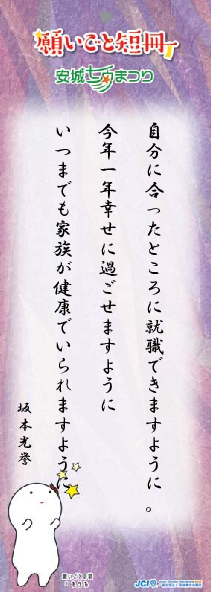 願いごと短冊
安城七夕まつり
自分に合ったところに就職できますように。
今年一年幸せに過ごせますように
いつまでも家族が健康でいられますように
坂本光誉
願いごと短冊
JCI